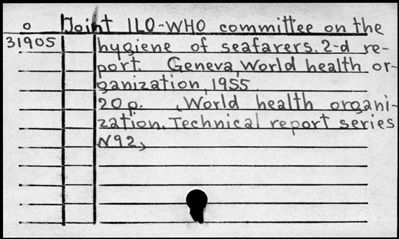 o Joint ILO-WHO committee on the
31905 hygiene of seafarers. 2-d re-
port. Geneva, World health or-
ganization, 1955
20 p. , World health organi-
zation. Technical report series
N92,